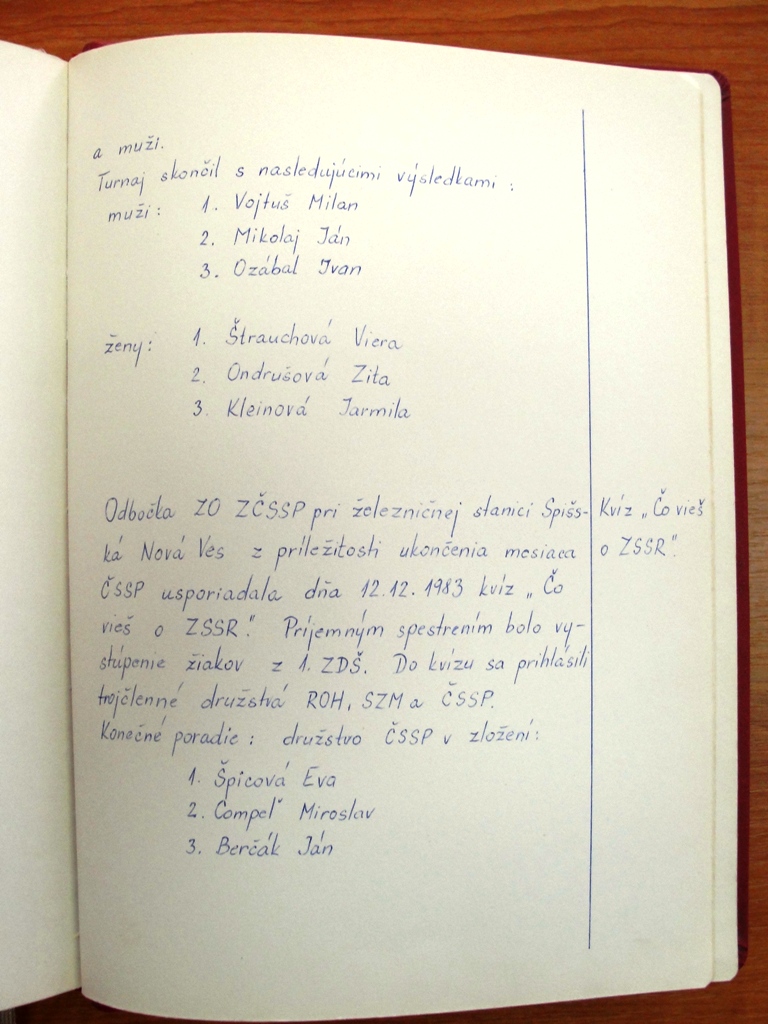 a muži.
Turnaj skončil s nasledujúcimi výsledkami :
muži : 1. Vojtuš Milan
2. Mikolaj Ján
3. Ozábal Ivan
ženy : 1. Štrauchová Viera
2. Ondrušová Zita
3. Kleinová Jarmila
Odbočka ZO ZČSSP pri železničnej stanici Spišs-
ká Nová Ves z príležitosti ukončenia mesiaca
ČSSP usporiadala dňa 12.12.1983 kvíz „Čo
vieš o ZSSR." Príjemným spestrením bolo vy-
stúpenie žiakov z 1. ZDŠ. Do kvízu sa prihlásili
trojčlenné družstvá ROH, SZM a ČSSP.
Konečné poradie : družstvo ČSSP v zložení :
1. Špicová Eva
2. Čompeľ Miroslav
3. Berčák Ján
Kvíz „Čo vieš
o ZSSR".